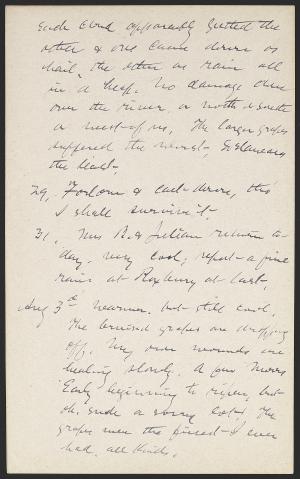 each cloud apparently gutted the
other & one came down as
hail, the other as rain all
in a heap. No damage done
over the river, or north & south
or west of us, The larger grapes
suffered the worst, Delawares
the least.
29, Forlorn & cast-down, tho
I shall survive it.
31, Mrs B. & Julian return to-
day. very cool; report a fine
rain at Roxbury at last.
Aug 3d Warmer, but still cool.
The bruised grapes are dropping
off. My own wounds are
healing slowly. A few Moores
Early beginning to ripen, but
oh, such a sorry lot! The
grapes were the finest I ever
had, all kinds.